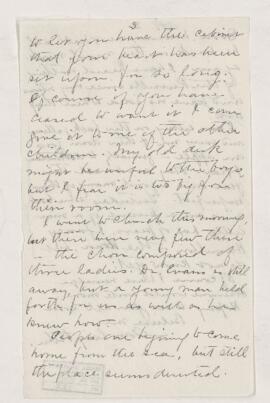 3
to let you have the cabinet
that your heart has been
set upon for so long.
Of course if you have
ceased to want it I can
give it to one of the other
children. My old desk
might be useful to the boys,
but I fear it is too big for
their room.
I went to church this morning,
but there were very few there
– the choir composed of
three ladies. Dr. Evans is still
away, but a young man held
forth for us as well as he
knew how.
People are beginning to come
home from the sea, but still
the place seems deserted.